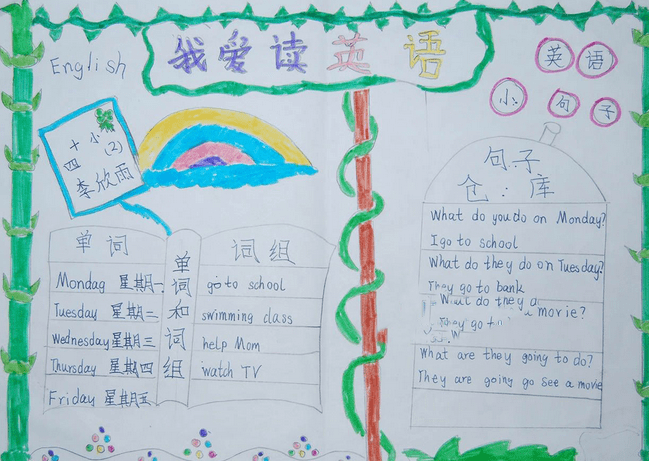 English
我爱读英语
英语
小句子
十小
四(2)
李欣雨
单词
Mondag 星期一
Tuesday 星期二
Wednesday 星期三
Thursday 星期四
Friday 星期五
单词和词组
词组
go to school
swimming class
help Mom
watch TV
句子
仓:库
What do you do on Monday?
I go to school
What do they do on Tuesday?
They go to bank
What do they a
a movie?
They go to
What are they going to do?
They are going go see a movie